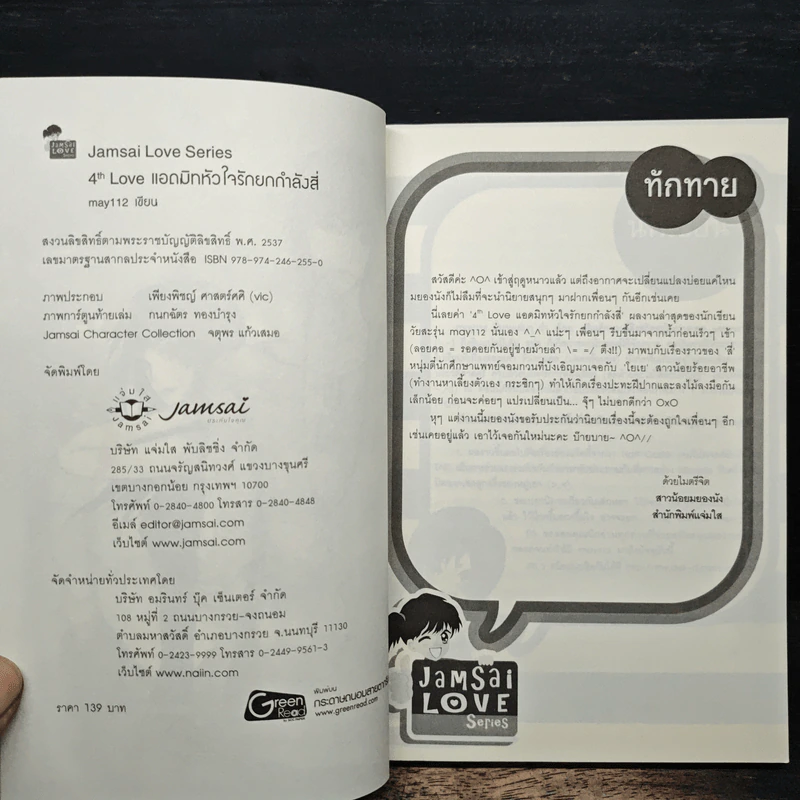 JAMSAI
LOVE
Series
Jamsai Love Series
4th Love แอดมิทหัวใจรักยกกำลังสี่
may112 เขียน
สงวนลิขสิทธิ์ตามพระราชบัญญัติลิขสิทธิ์ พ.ศ. 2537
เลขมาตรฐานสากลประจำหนังสือ ISBN 978-974-246-255-0
ภาพประกอบ เพียงพิชญ์ ศาสตร์ศศิ (vic)
ภาพการ์ตูนท้ายเล่ม กนกฉัตร ทองบำรุง
Jamsai Character Collection จตุพร แก้วเสมอ
จัดพิมพ์โดย
แจ่มใส
Jamsai
Jamsai
บริษัท แจ่มใส พับลิชชิ่ง จำกัด
285/33 ถนนจรัญสนิทวงศ์ แขวงบางขุนศรี
เขตบางกอกน้อย กรุงเทพฯ 10700
โทรศัพท์ 0-2840-4800 โทรสาร 0-2840-4848
อีเมล์ editor@jamsai.com
เว็บไซต์ www.jamsai.com
จัดจำหน่ายทั่วประเทศโดย
บริษัท อมรินทร์ บุ๊ค เซ็นเตอร์ จำกัด
108 หมู่ที่ 2 ถนนบางกรวย-จงถนอม
ตำบลมหาสวัสดิ์ อำเภอบางกรวย จ.นนทบุรี 11130
โทรศัพท์ 0-2423-9999 โทรสาร 0-2449-9561-3
เว็บไซต์ www.naiin.com
ราคา 139 บาท
Green
Read
พิมพ์บน
กระดาษถนอมสายตา
www.greenread.com
ทักทาย
สวัสดีค่ะ ^O^ เข้าสู่ฤดูหนาวแล้ว แต่ถึงอากาศจะเปลี่ยนแปลงบ่อยแค่ไหน
มยองนังก็ไม่ลืมที่จะนำนิยายสนุกๆ มาฝากเพื่อนๆ กันอีกเช่นเคย
นี่เลยค่า '4th Love แอดมิทหัวใจรักยกกำลังสี่' ผลงานล่าสุดของนักเขียน
วัยสะรุ่น may112 นั่นเอง ^_^ แน่ะๆ เพื่อนๆ รีบขึ้นมาจากน้ำก่อนเร็วๆ เข้า
(ลอยคอ = รอคอยกันอยู่ช่ายม้ายล่า \= =/ ตึง!!) มาพบกับเรื่องราวของ 'สี่'
หนุ่มตี๋นักศึกษาแพทย์จอมกวนที่บังเอิญมาเจอกับ 'โยเย' สาวน้อยร้อยอาชีพ
(ทำงานหาเลี้ยงตัวเอง กระซิกๆ) ทำให้เกิดเรื่องปะทะฝีปากและลงไม้ลงมือกัน
เล็กน้อย ก่อนจะค่อยๆ แปรเปลี่ยนเป็น... จุ๊ๆ ไม่บอกดีกว่า OxO
หุๆ แต่งานนี้มยองนังขอรับประกันว่านิยายเรื่องนี้จะต้องถูกใจเพื่อนๆ อีก
เช่นเคยอยู่แล้ว เอาไว้เจอกันใหม่นะคะ บ๊ายบาย~ ^O^//
ด้วยไมตรีจิต
สาวน้อยมยองนัง
สำนักพิมพ์แจ่มใส
JAMSAI
LOVE
Series